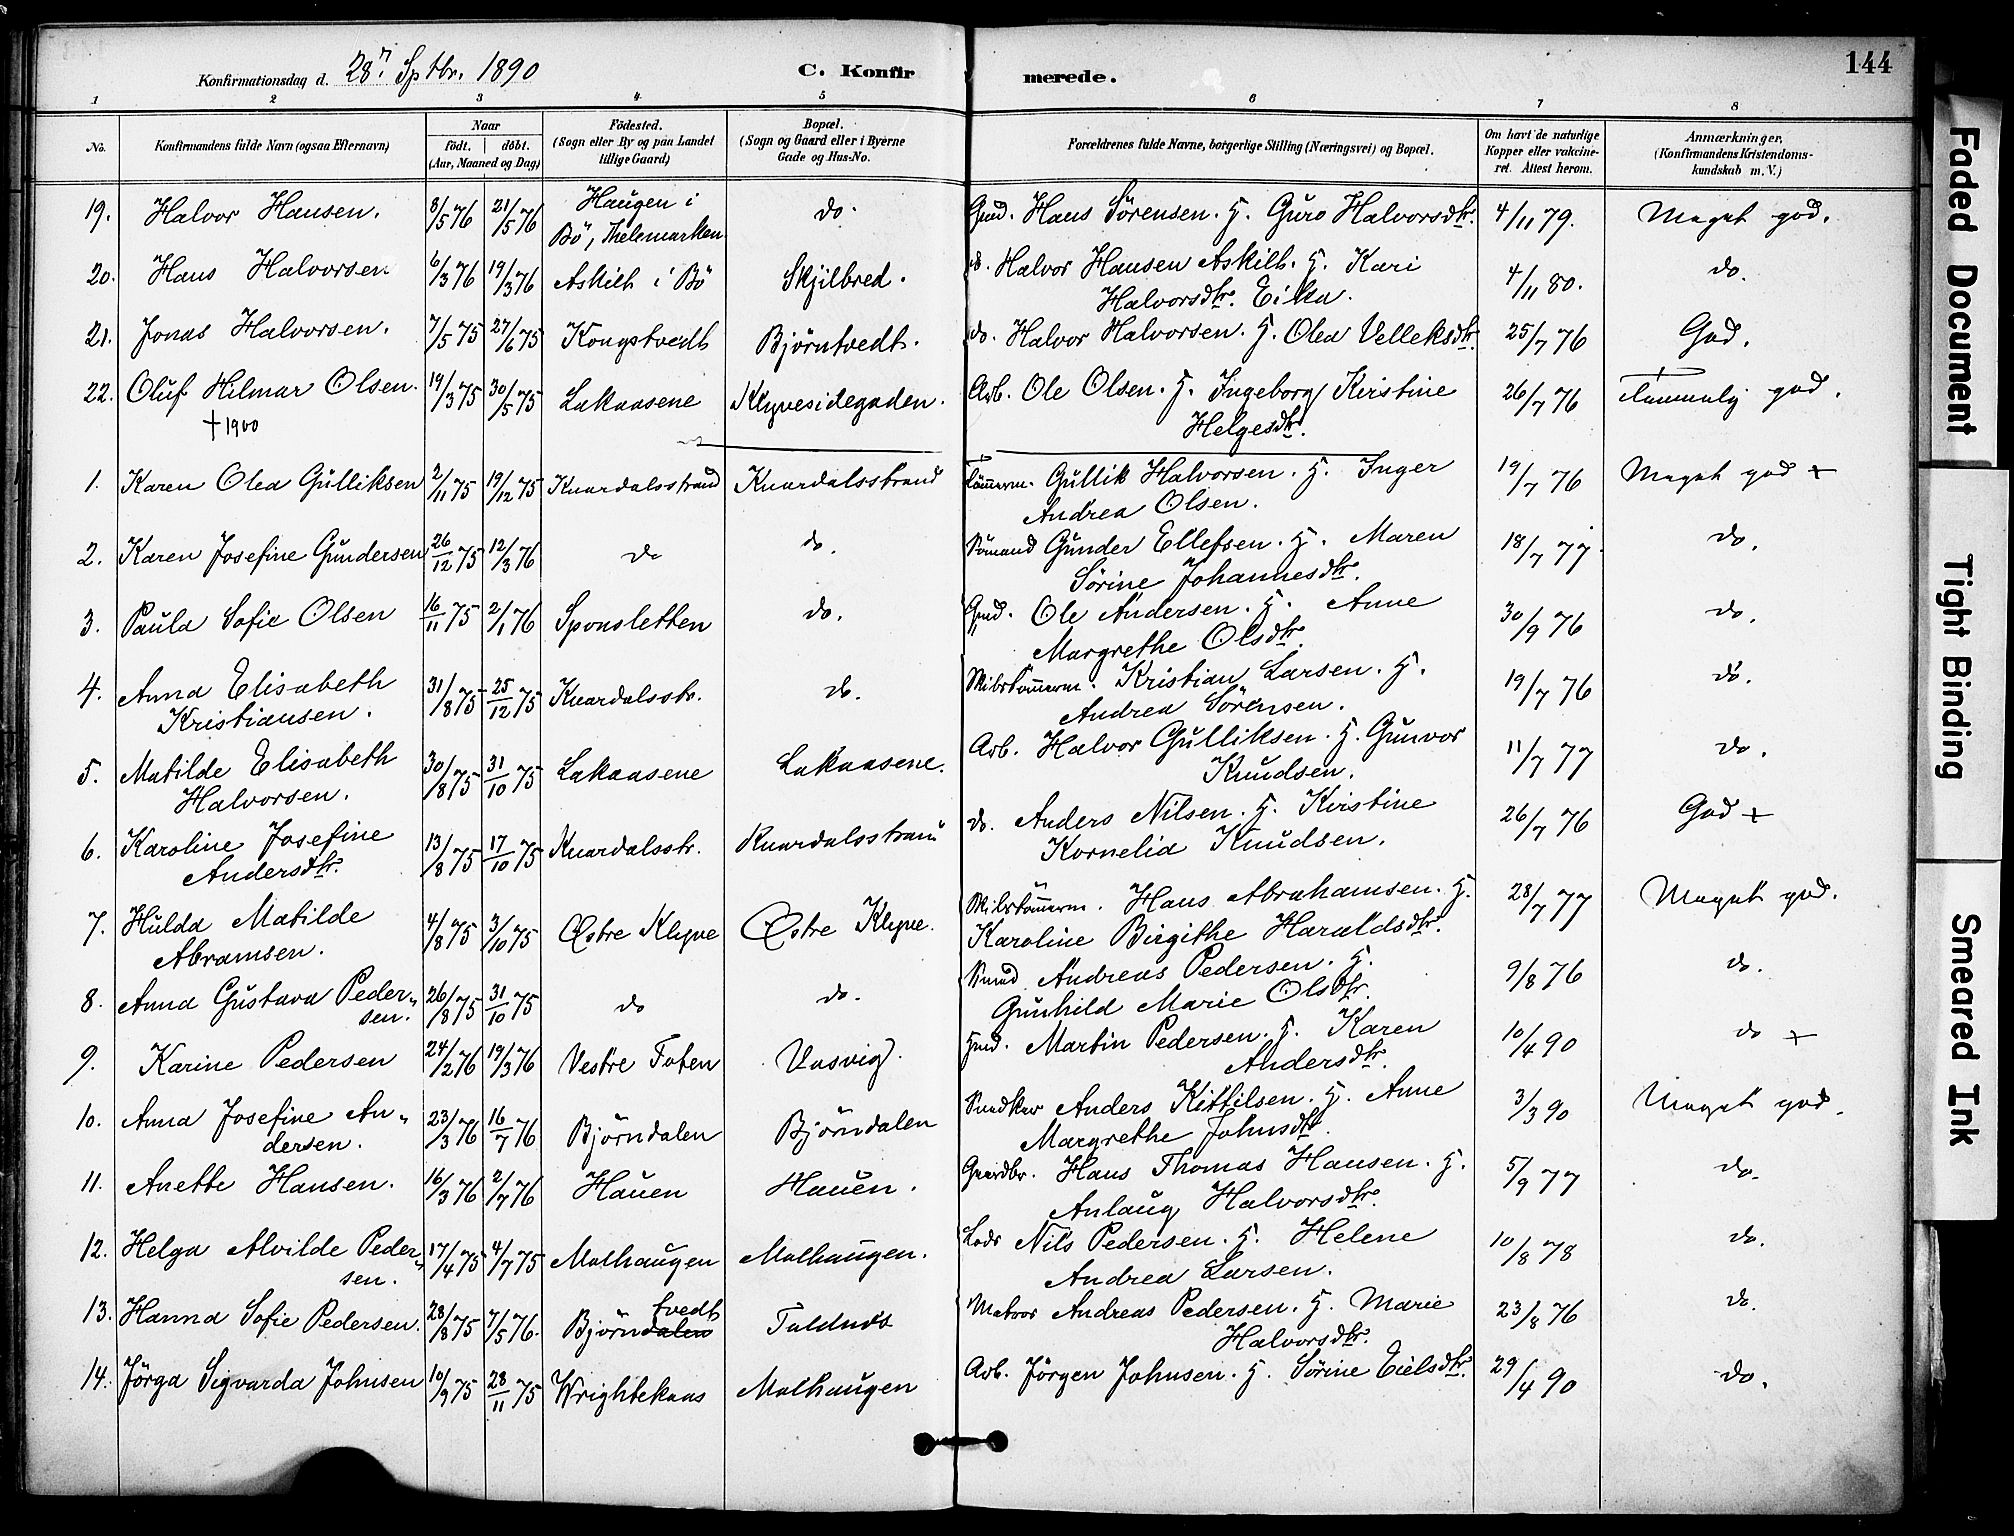 144
Konfirmationsdag d. 28n Sptbr. 1890 C. Konfirmerede.
1 2 3 4 5 6 7 8
No. Konfirmandens fulde Navn (ogsaa Efternavn) Naar født. døbt. (Aar, Maaned og Dag) Födested. (Sogn eller By og paa Landet tillige Gaard) Bopæl. (Sogn og Gaard eller i Byerne Gade og Hus-No. Forældrenes fulde Navne, borgerlige Stilling (Næringsvei) og Bopæl. Om havt de naturlige Kopper eller vakcineret. Attest herom. Anmærkninger, (Konfirmandens Kristendomskundskab m. V.)
19. Halvor Hansen. 8/5 76 21/5 76 Haugen i Bö, Thelemarken do. Gmd. Hans Sörensen. H. Guro Halvorsdtr. 4/11 79. Meget god.
20. Hans Halvorsen 6/3 76 19/3 76 Askilt i Bö Skjilbred. d. Halvor Hansen Askilt. H. Kari Halvorsdtr. Eika. 4/11 80. do.
21. Jonas Halvorsen. 7/5 75 27/6 75 Kongstvedt Björntvedt. do. Halvor Halvorsen. H. Olea Velleksdtr. 25/7 76 God.
22. Oluf Hilmar Olsen. 19/3 75 30/5 75 Lakaasene Klyvesidegaden. Arb. Ole Olsen. H. Ingeborg Kirstine Helgesdtr. 26/7 76 Temmelig god.
† 1900
1. Karen Olea Gulliksen 2/11 75 19/12 75 Knardalsstrand Knardalsstrand Tömmerm. Gullik Halvorsen. H. Inger Andrea Olsen. 19/7 76 Meget god +
2. Karen Josefine Gundersen 26/12 75 12/3 76 do do. Sömand Gunder Ellefsen. H. Maren Sörine Johannesdtr. 18/7 77. do.
3. Paula Sofie Olsen 16/11 75 2/1 76 Sponsletten do. Gmd. Ole Andersen. H. Anne Margrethe Olsdtr. 30/9 76 do.
4. Anna Elisabeth Kristiansen. 31/8 75 25/12 75 Knardalsstr. do. Skibstömmerm. Kristian Larsen. H. Andrea Sörensen. 19/7 76 do.
5. Matilde Elisabeth Halvorsen. 30/8 75 31/10 75 Lakaasene Lakaasene. Arb. Halvor Gulliksen. H. Gunvor Knudsen. 11/7 77 do.
6. Karoline Josefine Andersdtr. 13/8 75 17/10 75 Knardalsstr. Knardalsstrand do. Anders Nilsen. H. Kirstine Kornelia Knudsen. 26/7 76 God +
7. Hulda Matilde Abramsen. 4/8 75 3/10 75 Østre Klyve Østre Klyve. Skibstömmerm. Hans Abrahamsen. H. Karoline Birgithe Haraldsdtr. 28/7 77 Meget god.
8. Anna Gustava Pedersen. 26/8 75 31/10 75 do do. Smed Andreas Pedersen. H. Gunhild Marie Olsdtr. 9/8 76 do.
9. Karine Pedersen 24/2 76 19/3 76 Vestre Toten Vasvig. Hmd. Martin Pedersen. H. Karen Andersdtr. 10/4 90 do +
10. Anna Josefine Andersen. 23/3 76 16/7 76 Björndalen Björndalen Snedker Anders Kittilsen. H. Anne Margrethe Johnsdtr. 3/3 90 Meget god.
11. Anette Hansen. 16/3 76 2/7 76 Hauen Hauen. Gaardbr. Hans Thomas Hansen. H. Anlaug Halvorsdtr. 5/9 77 do.
12. Helga Alvilde Pedersen. 17/4 75 4/7 75 Molhaugen Molhaugen. Lods Nils Pedersen. H. Helene Andrea Larsen. 10/8 78 do.
13. Hanna Sofie Pedersen. 28/8 75 7/5 76. Björndalen tvedt Matros Andreas Pedersen. H. Marie Halvorsdtr. 23/8 76 do.
14. Jörga Sigvarda Johnsen 10/9 75 28/11 75 Wrightekaas Molhaugen Arb. Jörgen Johnsen. H. Sörine Eielsdtr. 29/4 90 do.
Faded Document
Tight Binding
Smeared Ink